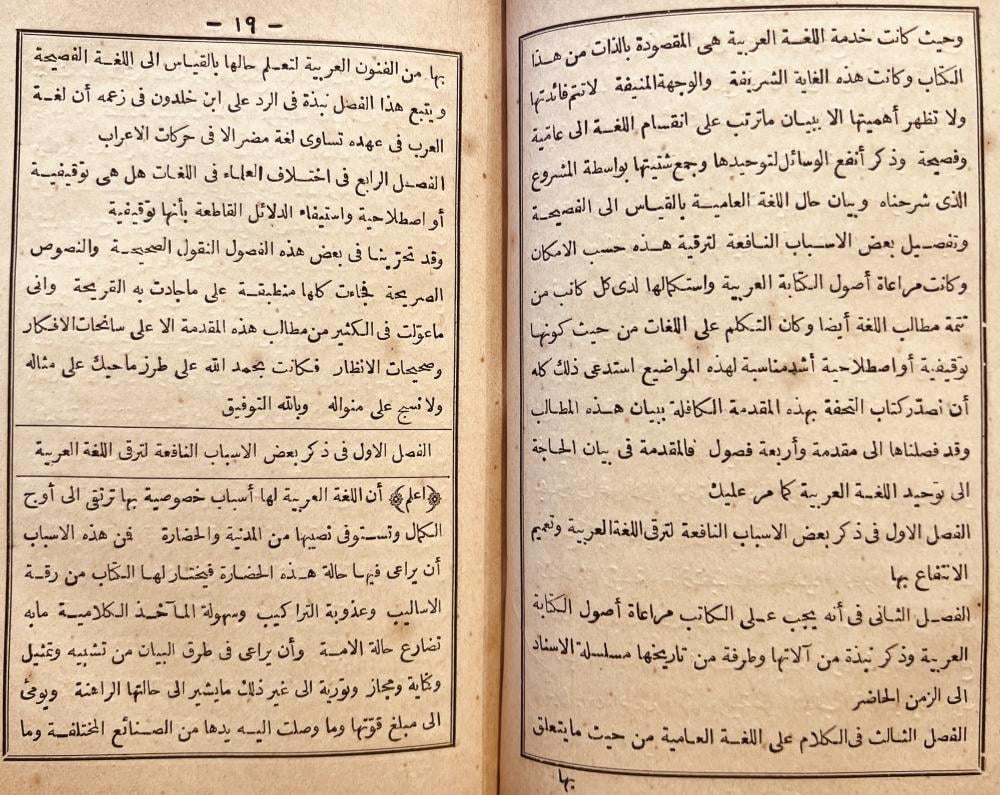 وحيث كانت خدمة اللغة العربية هى المقصودة بالذات من هذا
الكتاب وكانت هذه الغاية الشريفة والوجهة المنيفة لاتتم فائدتها
ولا تظهر أهميتها الا ببيان ماترتب على انقسام اللغة الى عامية
وفصيحة وذكر أنفع الوسائل لتوحيدها وجمع شتيتها بواسطة المشروع
الذى شرحناه وبيان حال اللغة العامية بالقياس الى الفصيحة
وتفصيل بعض الاسباب النافعة لترقية هذه حسب الامكان
وكانت مراعاة أصول الكتابة العربية واستكمالها لدى كل كاتب من
تتمة مطالب اللغة أيضا وكان التكلم على اللغات من حيث كونها
توقيفية أو اصطلاحية أشد مناسبة لهذه المواضيع استدعى ذلك كله
أن نصدّر كتاب التحفة بهذه المقدمة الكافلة ببيان هذه المطالب
وقد فصلناها الى مقدمة وأربعة فصول فالمقدمة فى بيان الحاجة
الى توحيد اللغة العربية كما مر عليك
الفصل الاول فى ذكر بعض الاسباب النافعة لترقى اللغة العربية وتعميم
الانتفاع بها
الفصل الثانى فى أنه يجب على الكاتب مراعاة أصول الكتابة
العربية وذكر نبذة من آلاتها وطرفة من تاريخها مسلسلة الاسناد
الى الزمن الحاضر
الفصل الثالث فى الكلام على اللغة العامية من حيث مايتعلق
بها
– ١٩ –
بها من الفنون العربية لتعلم حالها بالقياس الى اللغة الفصيحة
ويتبع هذا الفصل نبذة فى الرد على ابن خلدون فى زعمه أن لغة
العرب فى عهده تساوى لغة مضر الا فى حركات الاعراب
الفصل الرابع فى اختلاف العلماء فى اللغات هل هى توقيفية
أو اصطلاحية واستيفاء الدلائل القاطعة بأنها توقيفية
وقد تحرّينا فى بعض هذه الفصول النقول الصحيحة والنصوص
الصريحة فجاءت كلها منطبقة على ماجادت به القريحة وانى
ماعوّلت فى الكثير من مطالب هذه المقدمة الا على سانحات الافكار
وصحيحات الانظار فكانت بحمد الله على طرز ماحيك على مثاله
ولا نسج على منواله وبالله التوفيق
الفصل الاول فى ذكر بعض الاسباب النافعة لترقى اللغة العربية
﴿اعلم﴾ أن اللغة العربية لها أسباب خصوصية بها ترتقى الى أوج
الكمال وتستوفى نصيبها من المدنية والحضارة فمن هذه الاسباب
أن يراعى فيها حالة هذه الحضارة فيختار لها الكتاب من رقة
الاساليب وعذوبة التراكيب وسهولة المآخذ الكلامية مابه
تضارع حالة الامة وأن يراعى فى طرق البيان من تشبيه وتمثيل
وكناية ومجاز وتورية الى غير ذلك مايشير الى حالتها الراهنة ويومئ
الى مبلغ قوّتها وما وصلت اليه يدها من الصنائع المختلفة وما